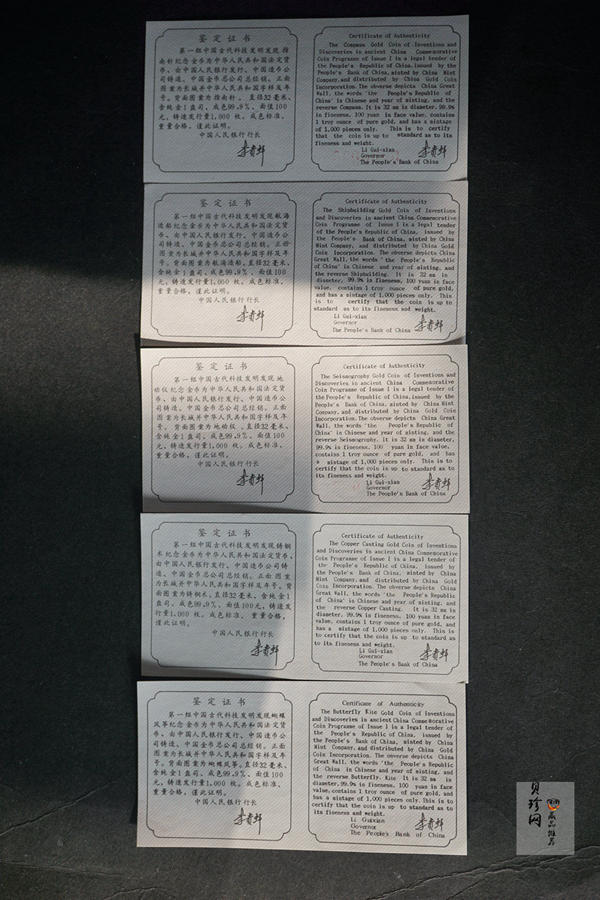 鉴定证书
第一组中国古代科技发明发现指
南针纪念金币为中华人民共和国法定货
币、由中国人民银行发行、中国造币公
司铸造、中国金币总公司总经销。正面
图案为长城并中华人民共和国字样及年
号。背面图案为指南针。直径32毫米、
含纯金1盎司。成色99.9%。面值100
元。铸造发行量1,000枚。成色标准、
重量合格。谨此证明。
中国人民银行行长
Certificate of Authenticity
The Compass Gold Coin of Inventions and
Discoveries in ancient China Commemorative
Coin Programe of Issue I is a legal tender of
the People's Republic of China,issued by the
People's Bank of China, minted by China Mint
Company, and distributed by China Gold Coin
Incorporation. The obverse depicts China Great
Wall, the words 'the People's Republic of
China' in Chinese and year of minting, and the
reverse Compass. It is 32 mm in diameter, 99.9%
in fineness, 100 yuan in face value, contains
1 troy ounce of pure gold, and has a mintage
of 1,000 pieces only. This is to certify
that the coin is up to standard as to its
fineness and weight.
Li Gui-xian
Governor
The People's Bank of China
鉴定证书
第一组中国古代科技发明发现航海
造船纪念金币为中华人民共和国法定货
币、由中国人民银行发行、中国造币公
司铸造、中国金币总公司总经销。正面
图案为长城并中华人民共和国字样及年
号。背面图案为航海造船。直径32毫米、
含纯金1盎司。成色99.9%。面值100
元。铸造发行量1,000枚。成色标准、
重量合格。谨此证明。
中国人民银行行长
Certificate of Authenticity
The Shipbuilding Gold Coin of Inventions
and Discoveries in ancient China Commemorative
Coin Programe of Issue I is a legal tender
of the People's Republic of China, issued by
the People's Bank of China, minted by China
Mint Company, and distributed by China Gold
Coin Incorporation. The obverse depicts China
Great Wall, the words 'the People's Republic of
China' in Chinese and year of minting, and
the reverse Shipbuilding. It is 32 mm in
diameter, 99.9% in fineness, 100 yuan in face
value, contains 1 troy ounce of pure gold,
and has a mintage of 1,000 pieces only. This
is to certify that the coin is up to
standard as to its fineness and weight.
Li Gui-xian
Governor
The People's Bank of China
鉴定证书
第一组中国古代科技发明发现地
动仪纪念金币为中华人民共和国法定货
币、由中国人民银行发行、中国造币公
司铸造、中国金币总公司总经销。正面
图案为长城并中华人民共和国字样及年
号。背面图案为地动仪。直径32毫米、
含纯金1盎司。成色99.9%。面值100
元。铸造发行量1,000枚。成色标准、
重量合格。谨此证明。
中国人民银行行长
Certificate of Authenticity
The Seismography Gold Coin of Inventions and
Discoveries in ancient China Commemorative
Coin Programe of Issue I is a legal tender of
the People's Republic of China,issued by the
People's Bank of China, minted by China Mint
Company, and distributed by China Gold Coin
Incorporation. The obverse depicts China Great
Wall, the words 'the People's Republic of
China' in Chinese and year of minting, and the
reverse Seismography. It is 32 mm in diameter,
99.9% in fineness, 100 yuan in face value,
contains 1 troy ounce of pure gold, and has
a mintage of 1,000 pieces only. This is to
certify that the coin is up to standard as to
its fineness and weight.
Li Gui-xian
Governor
The People's Bank of China
鉴定证书
第一组中国古代科技发明发现铸铜
术纪念金币为中华人民共和国法定货币、
由中国人民银行发行、中国造币公司铸
造、中国金币总公司总经销。正面图案
为长城并中华人民共和国字样及年号。背
面图案为铸铜术。直径32毫米、含纯金1
盎司。成色99.9%。面值100元。铸造发
行量1,000枚。成色标准、重量合格。
谨此证明。
中国人民银行行长
Certificate of Authenticity
The Copper Casting Gold Coin of Inventions
and Discoveries in ancient China Commemorative
Coin Programe of Issue I is a legal tender of
the People's Republic of China, issued by
the People's Bank of China, minted by China
Mint Company, and distributed by China Gold
Coin Incorporation. The obverse depicts China
Great Wall, the words 'the People's Republic
of China' in Chinese and year of minting, and
the reverse Copper Casting. It is 32 mm in
diameter, 99.9% in fineness, 100 yuan in face
value, contains 1 troy ounce of pure gold, and
has a mintage of 1,000 pieces only. This is
to certify that the coin is up to standard as
to its fineness and weight.
Li Gui-xian
Governor
The People's Bank of China
鉴定证书
第一组中国古代科技发明发现蝴蝶
风筝纪念金币为中华人民共和国法定货
币、由中国人民银行发行、中国造币公
司铸造、中国金币总公司总经销。正面
图案为长城并中华人民共和国字样及年
号。背面图案为蝴蝶风筝。直径32毫米、
含纯金1盎司。成色99.9%。面值100
元。铸造发行量1,000枚。成色标准、
重量合格。谨此证明。
中国人民银行行长
Certificate of Authenticity
The Butterfly Kite Gold Coin of Inventions
and Discoveries in ancient China Commemorative
Coin Programe of Issue I is a legal tender of
the People's Republic of China, issued by
the People's Bank of China, minted by China
Mint Company, and distributed by China Gold
Coin Incorporation. The obverse depicts China
Great Wall, the words 'the People's Republic
of China in Chinese and year of minting, and
the reverse Butterfly Kite It is 32 mm in
diameter, 99.9% in fineness, 100 yuan in face
value, contains 1 troy ounce of pure gold, and
has a mintage of 1,000 pieces only. This is to
certify that the coin is up to standard as to
its fineness and weight.
Li Guixian
Governor
The People's Bank of China
贝珍网
藏品推荐